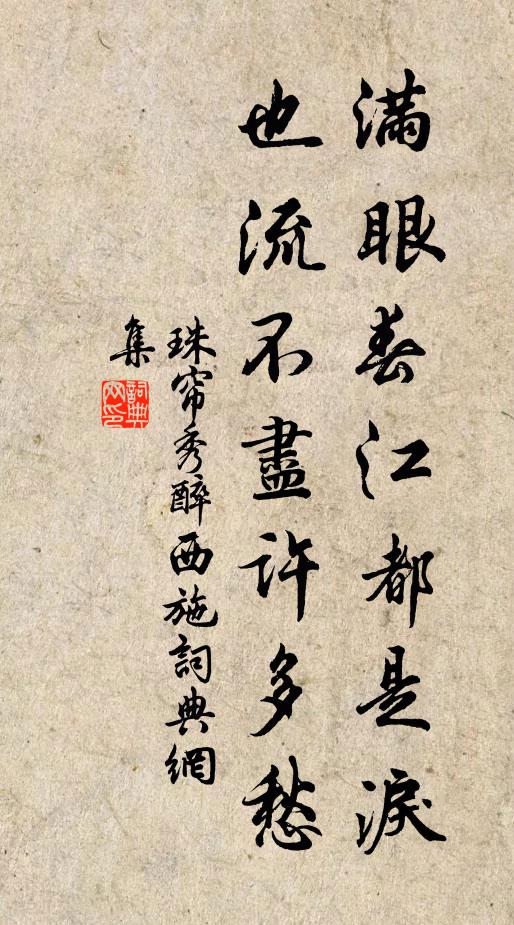 滿眼春江都是淚
也流不盡許多愁
珠帘秀醉西施詞典網
集
詞典網印